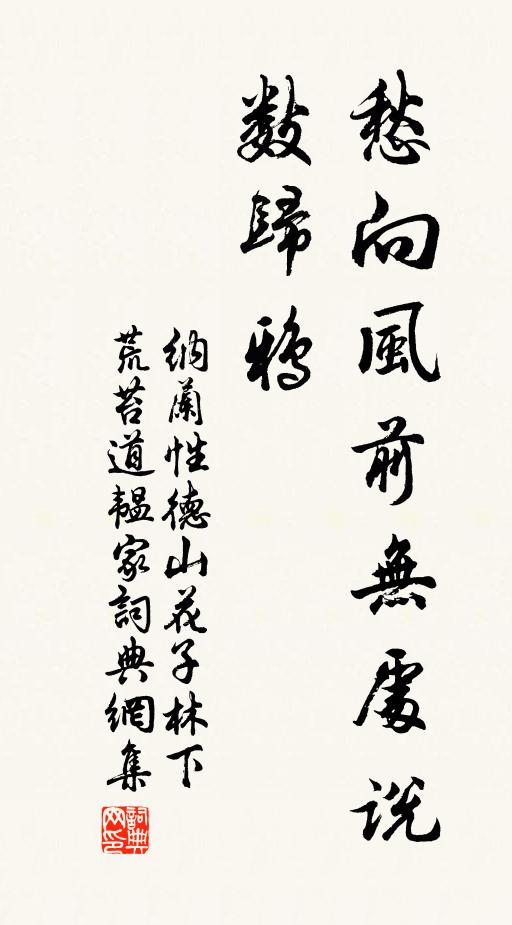 愁向風前無處說
數歸鴉
納蘭性德山花子林下
荒苔道韞家詞典網集
詞典網印